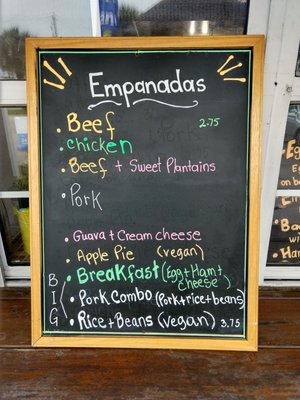 Empanadas
• Beef 2.75
• chicken
• Beef + Sweet Plantains
• Pork
• Guava + Cream cheese
• Apple Pie (vegan)
• Breakfast (Egg + Ham + cheese)
• Pork Combo (Pork + rice + beans)
• Rice + Beans (vegan) 3.75
BIG